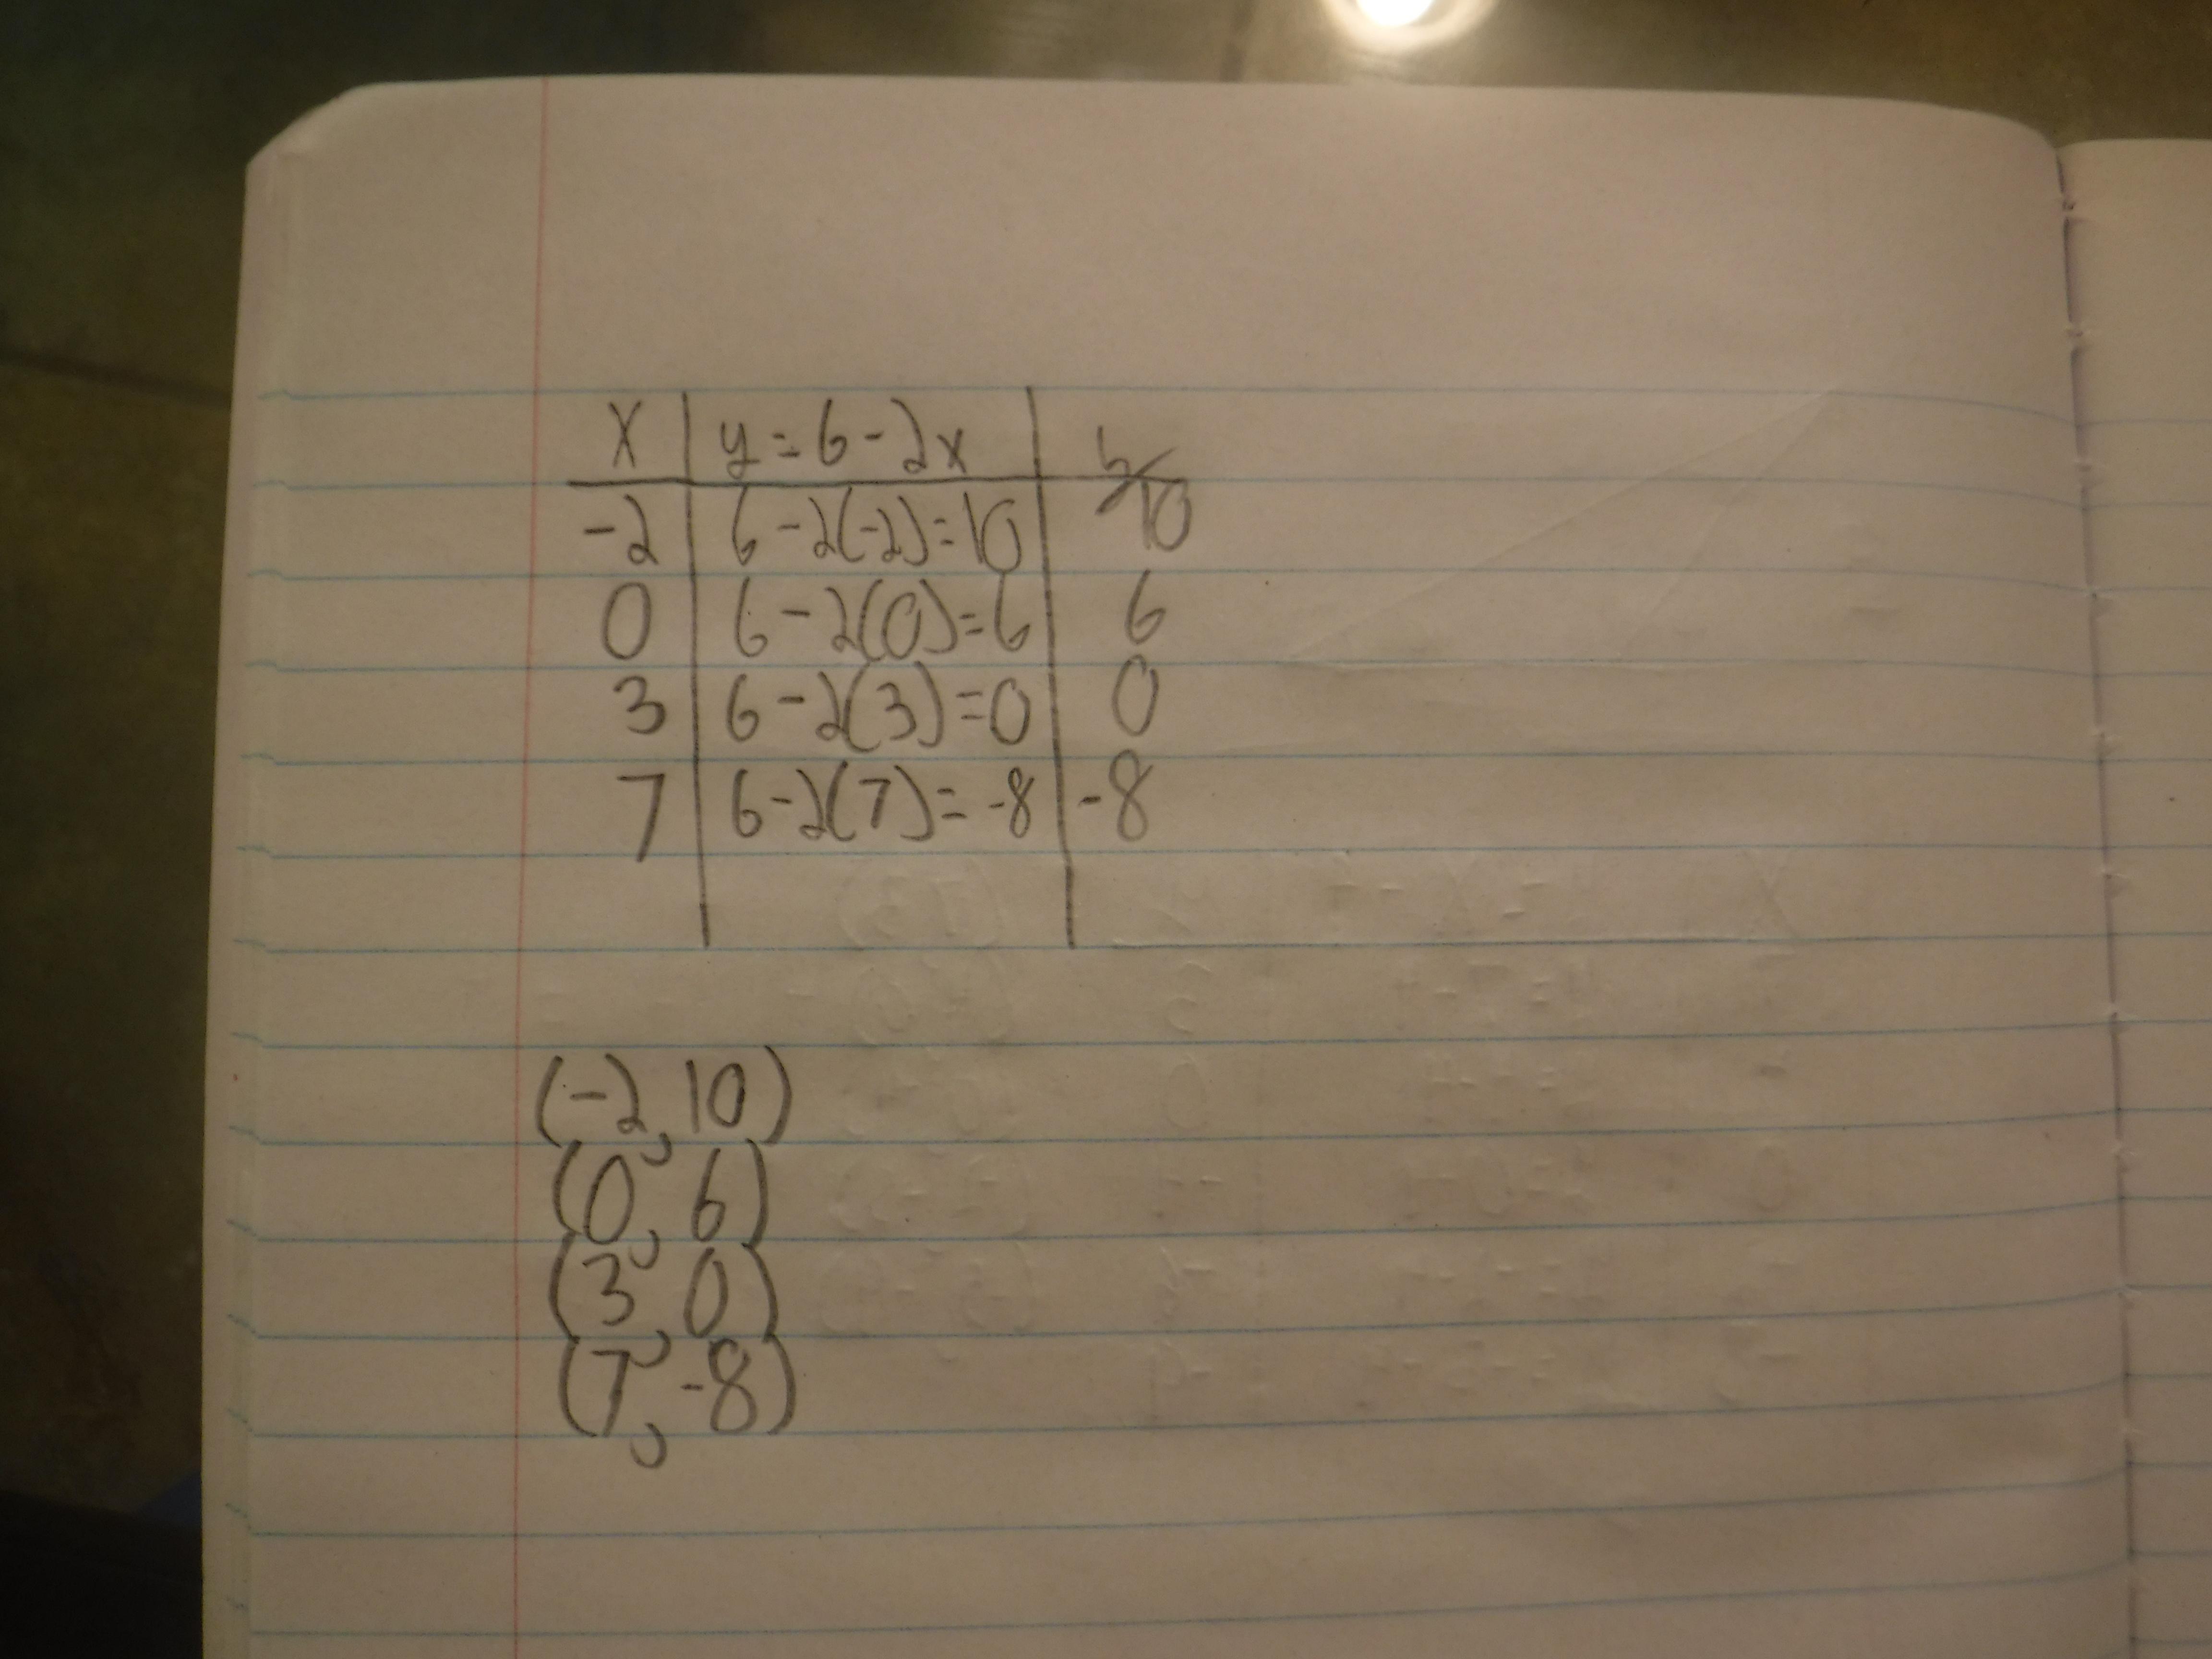 x y = 6 - 2x y
-2 6 - 2(-2) = 10 10
0 6 - 2(0) = 6 6
3 6 - 2(3) = 0 0
7 6 - 2(7) = -8 -8
(-2, 10)
(0, 6)
(3, 0)
(7, -8)